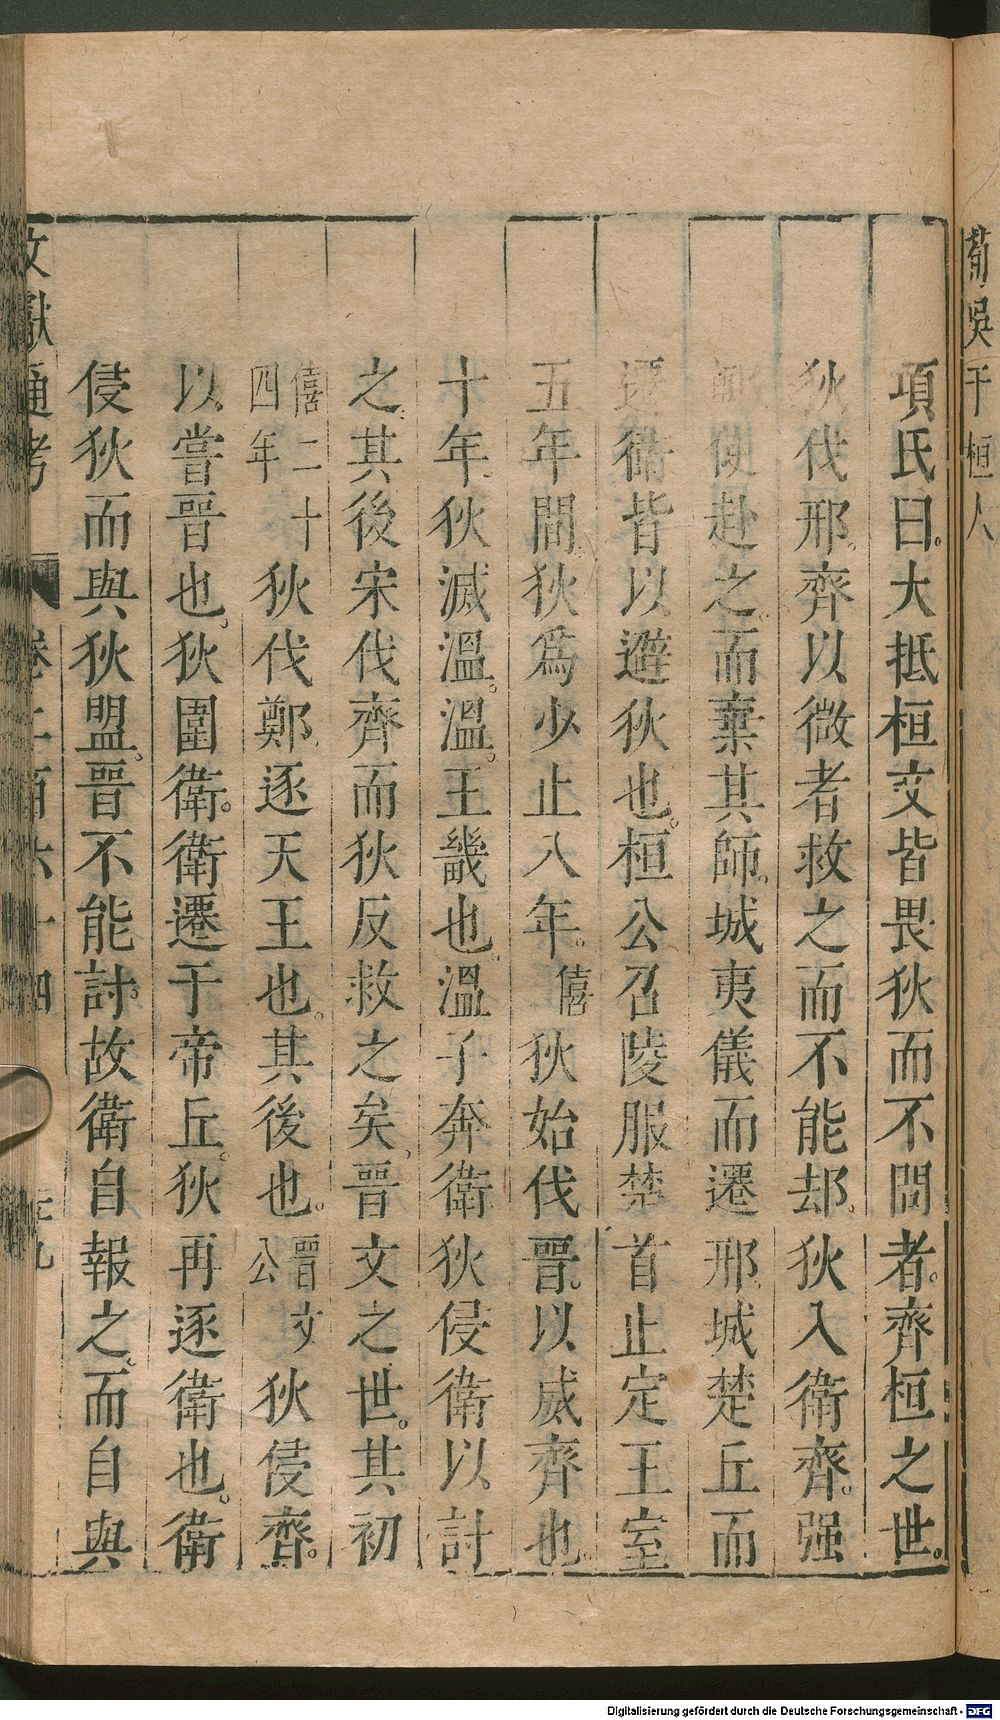 項氏曰。大抵桓文皆畏狄而不問者。齊桓之世。
狄伐邢。齊以微者救之而不能却。狄入衛。齊强
使赴之。而棄其師。城夷儀而遷邢。城楚丘而
遷衛。皆以避狄也。桓公召陵服楚。首止定王室
五年間。狄爲少止。八年。僖 狄始伐晉。以威齊也。
十年。狄滅溫。溫。王畿也。溫子奔衛。狄侵衛以討
之。其後宋伐齊而狄反救之矣。晉文之世。其初
僖二十四年 狄伐鄭。逐天王也。其後也。晉文公 狄侵齊。
以嘗晉也。狄圍衛。衛遷于帝丘。狄再逐衛也。衛
侵狄而與狄盟。晉不能討。故衛自報之。而自與
文獻通考 卷二百六十四
荀吳
干
桓
人
Digitalisierung gefördert durch die Deutsche Forschungsgemeinschaft - DFG